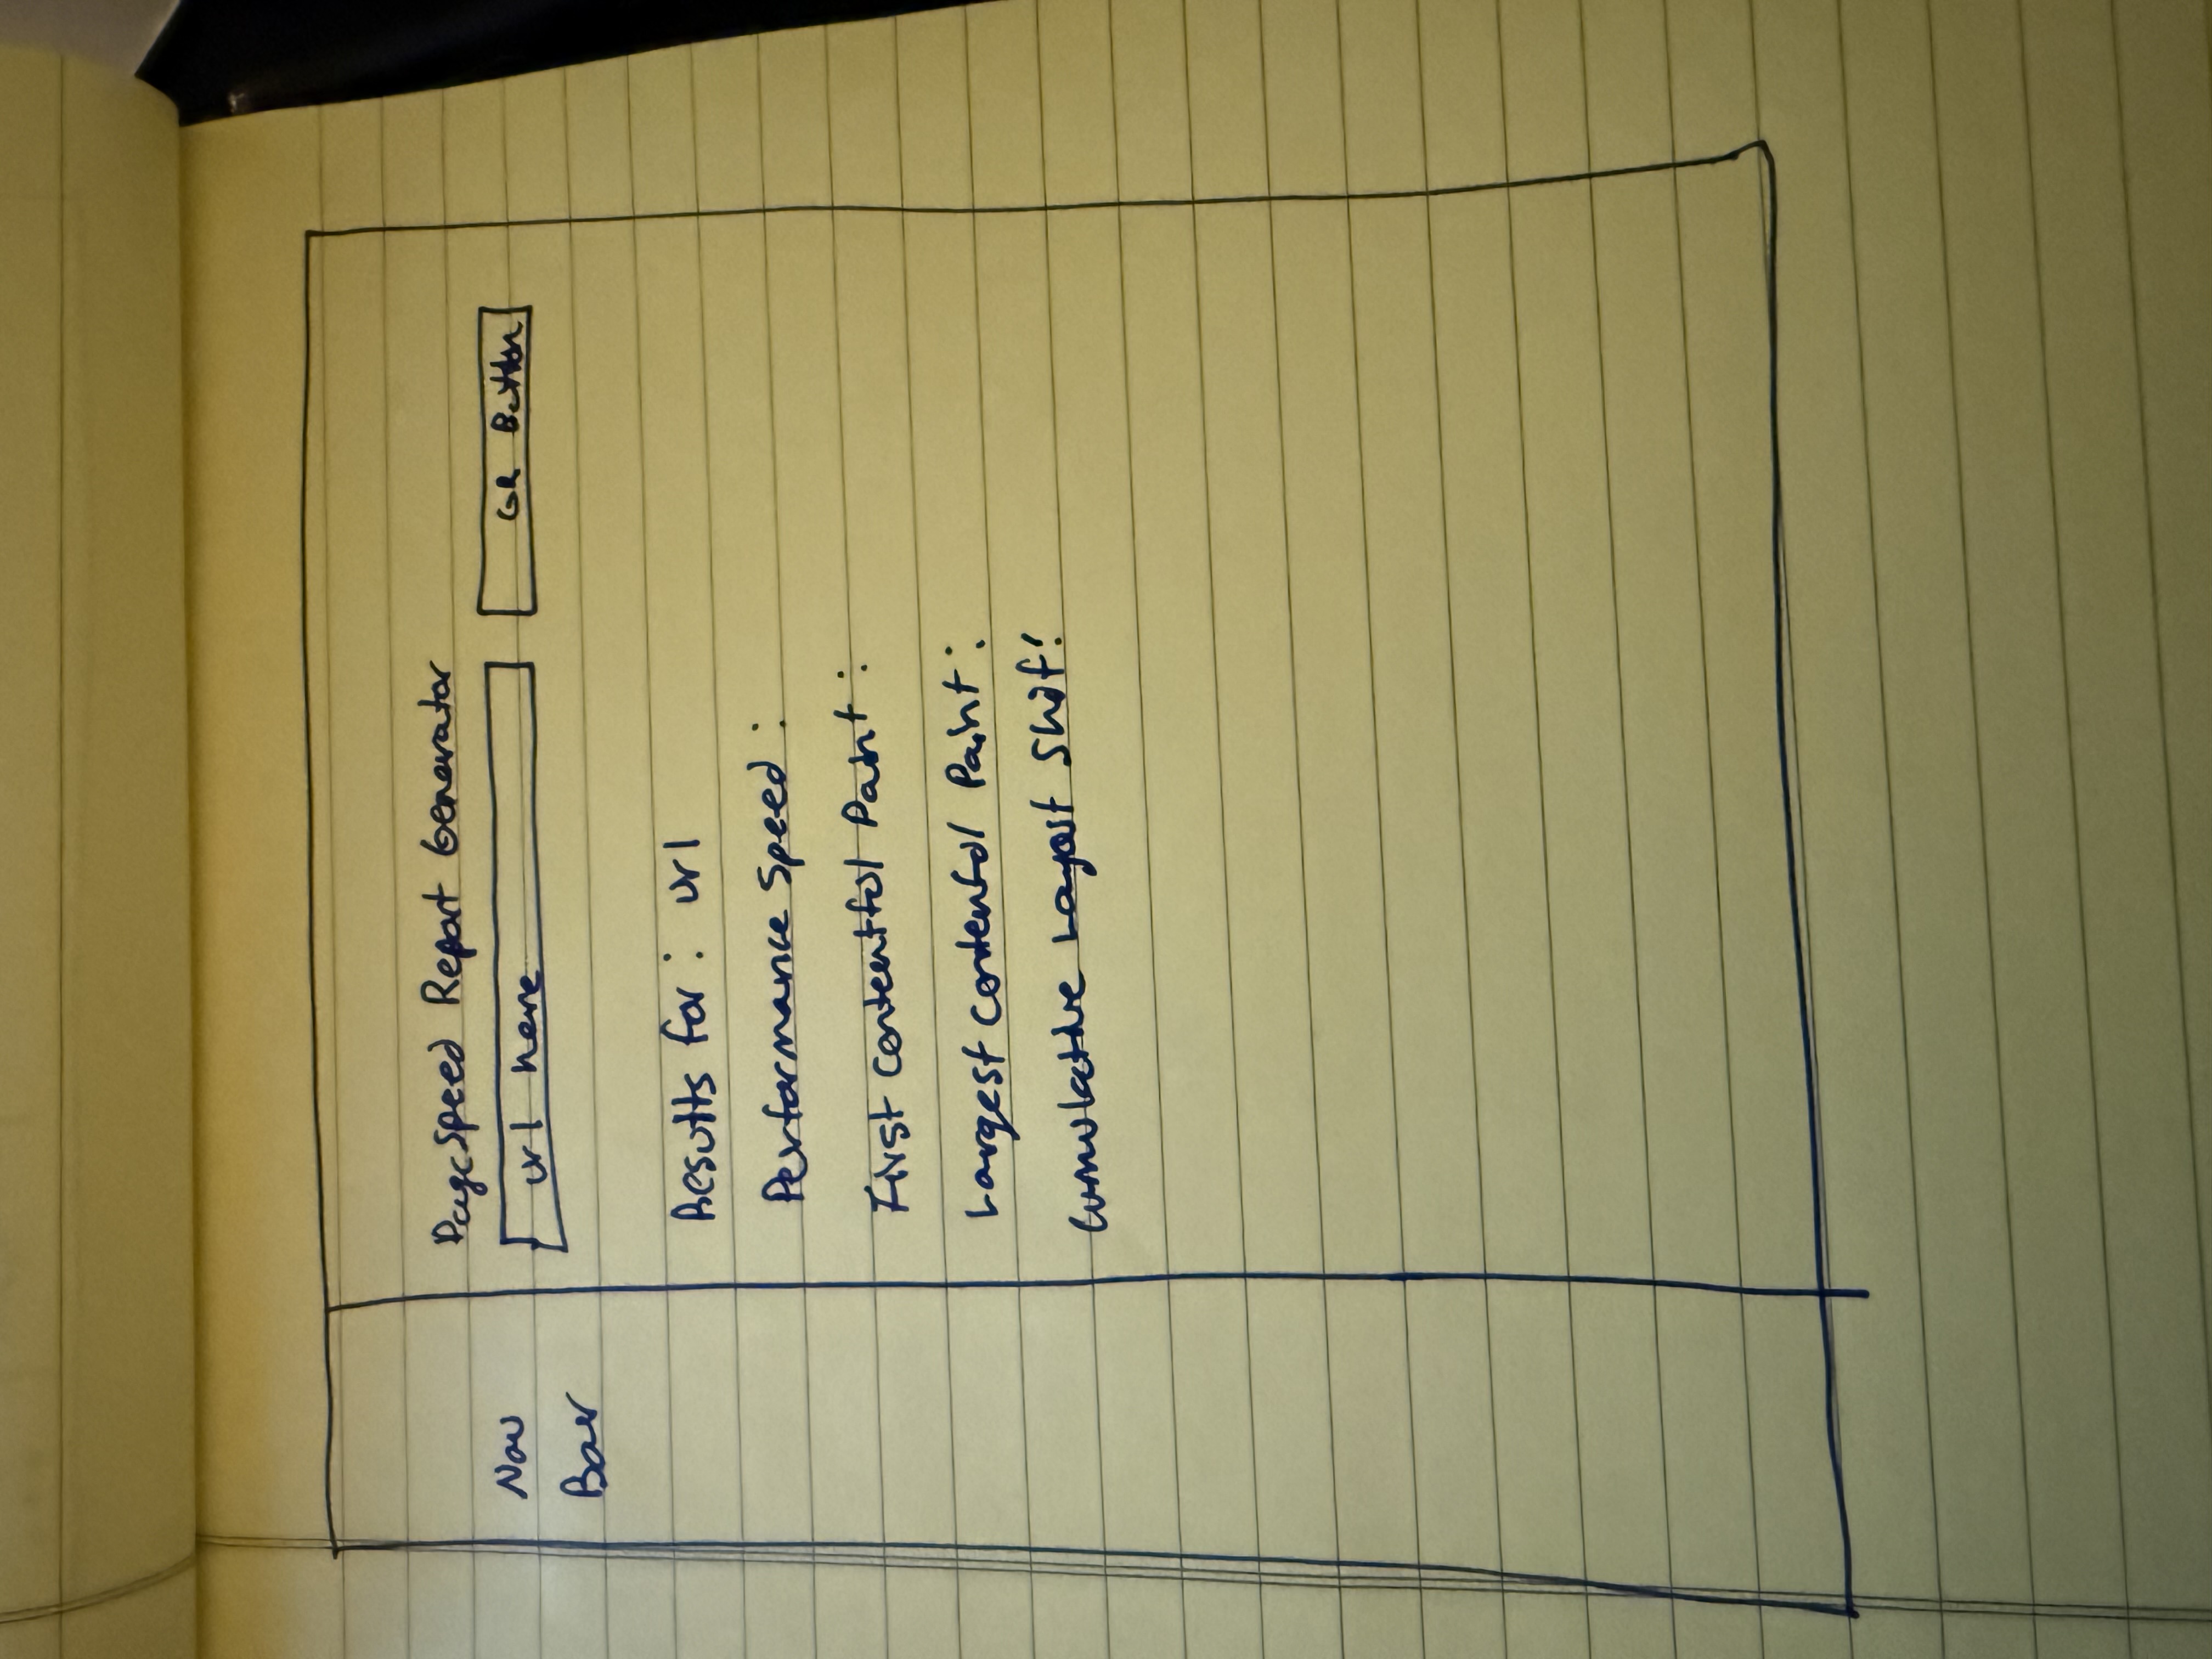 PageSpeed Report Generator
Nav
Bar
url here
GR Button
Results for: url
Performance Speed:
First Contentful Paint:
Largest Contentful Paint:
Cumulative Layout Shift: